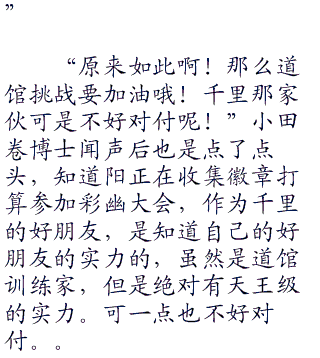 ”
“原来如此啊！那么道
馆挑战要加油哦！千里那家
伙可是不好对付呢！”小田
卷博士闻声后也是点了点
头，知道阳正在收集徽章打
算参加彩幽大会，作为千里
的好朋友，是知道自己的好
朋友的实力的，虽然是道馆
训练家，但是绝对有天王级
的实力。可一点也不好对
付。。